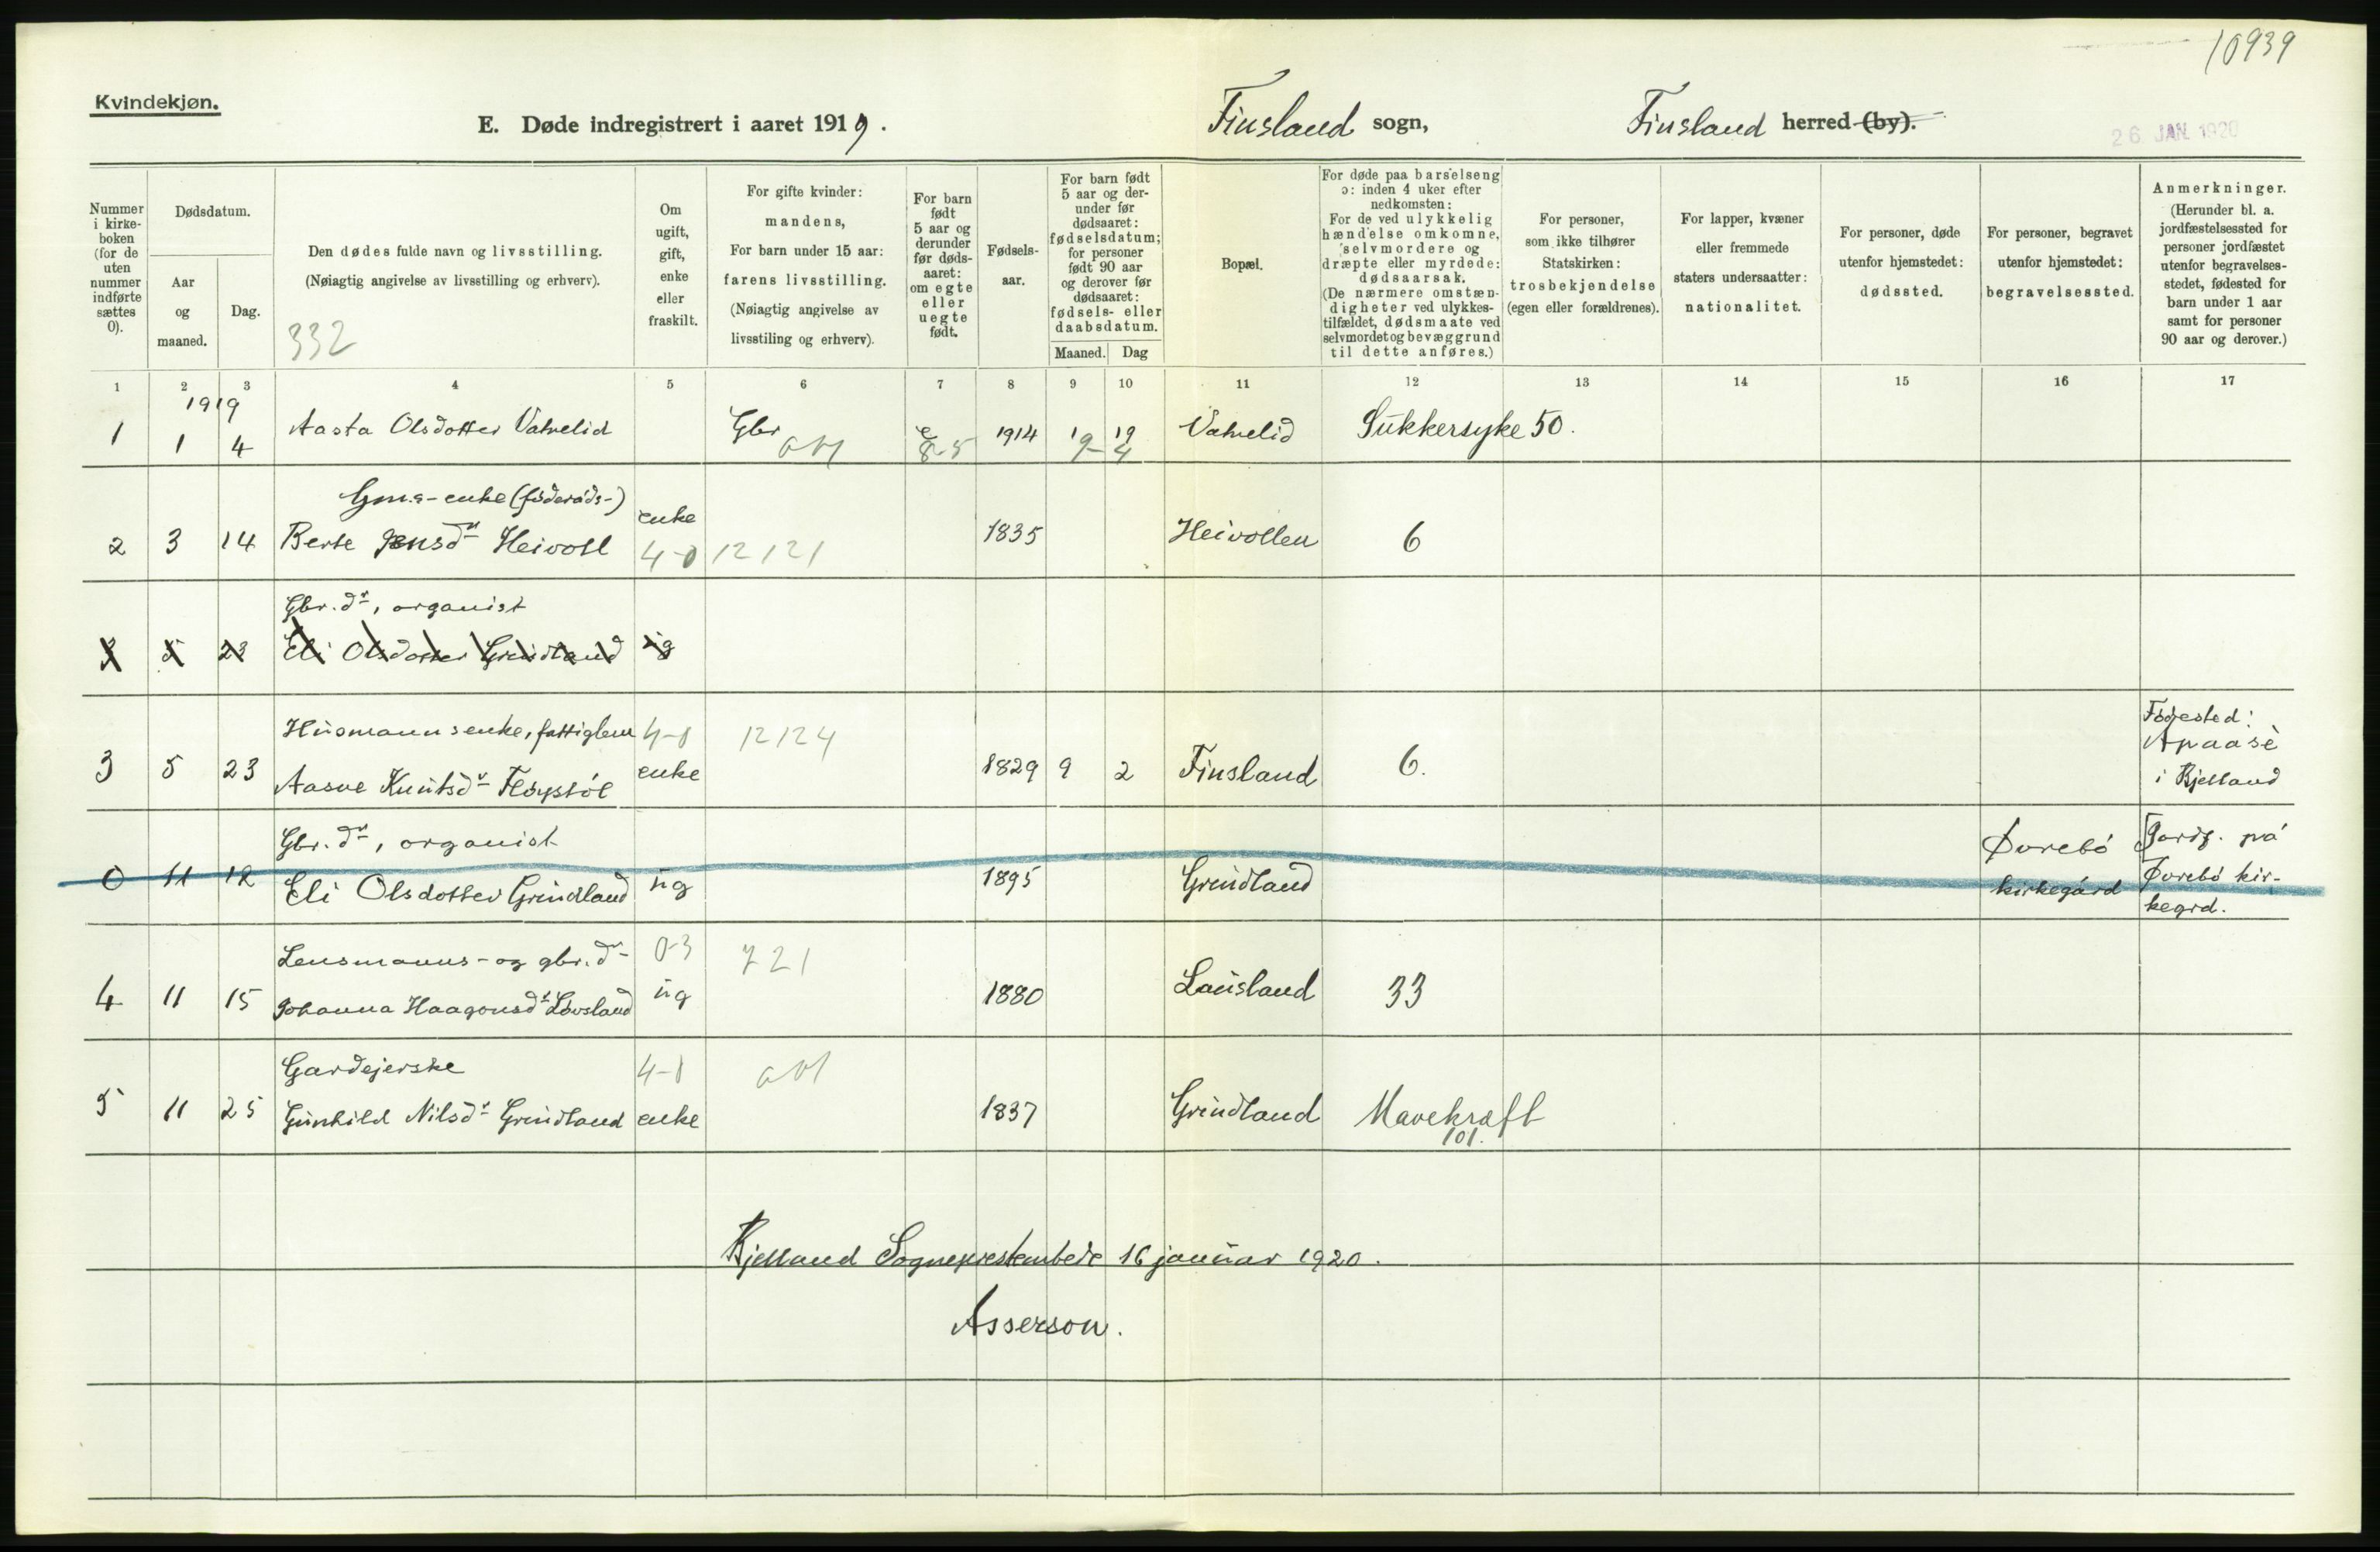 10939
Kvindekjøn.
E. Døde indregistrert i aaret 1919.
Finsland sogn,
Finsland herred (by).
26 JAN. 1920
Nummer i kirke-boken (for de uten nummer indførte sættes 0).
Dødsdatum.
Aar og maaned.
Dag.
Den dødes fulde navn og livsstilling.
(Nøiagtig angivelse av livsstilling og erhverv).
332
Om ugift, gift, enke eller fraskilt.
For gifte kvinder:
mandens,
For barn under 15 aar:
farens livsstilling.
(Nøiagtig angivelse av livsstiling og erhverv).
For barn født 5 aar og derunder før døds-aaret: om egte eller uegte født.
Fødsels-aar.
For barn født 5 aar og der-under før dødsaaret: fødselsdatum; for personer født 90 aar og derover før dødsaaret: fødsels- eller daabsdatum.
Maaned. Dag
Bopæl.
For døde paa barselseng ɔ: inden 4 uker efter nedkomsten:
For de ved ulykkelig hændelse omkomne, selvmordere og dræpte eller myrdede: dødsaarsak.
(De nærmere omstæn-digheter ved ulykkes-tilfældet, dødsmaate ved selvmordet og bevæggrund til dette anføres.)
For personer, som ikke tilhører Statskirken: trosbekjendelse (egen eller forældrenes).
For lapper, kvæner eller fremmede staters undersaatter: nationalitet.
For personer, døde utenfor hjemstedet: dødssted.
For personer, begravet utenfor hjemstedet: begravelsessted.
Anmerkninger.
(Herunder bl. a. jordfæstelsessted for personer jordfæstet utenfor begravelses-stedet, fødested for barn under 1 aar samt for personer 90 aar og derover.)
1 2 3 4 5 6 7 8 9 10 11 12 13 14 15 16 17
1919
1 1 4 Aasta Olsdotter Vatnelid Gbr e 8-5 1914 9 19 4 Vatnelid Sukkersyke 50.
Gm.s-enke (föderåds-)
2 3 14 Berte Jensdr Heivoll enke 4-0 12121 1835 Heivollen 6
Gbr. dr, organist
3 5 23 Eli Olsdotter Grindland ug
Husmannsenke, fattiglem 4-0 12124
3 5 23 Aasne Knutsdr Flöystöl enke 1829 9 2 Finsland 6.
Födested:
i Bjelland
Gbr. dr, organist
0 11 12 Eli Olsdotter Grindland ug 1895 Grindland
Øvrebö kirkegård
Jordf. på Øvrebö kir-kegrd.
Lensmanns- og gbr. dr 0-3 721
4 11 15 Johanna Haagonsdr Lövsland ug 1880 Lausland 33
Gardejerske 4-0
5 11 25 Gunhild Nilsdr Grindland enke 1837 Grindland Mavekræft
101.
Bjelland Sogneprestembede 16 januar 1920.
Asserson.